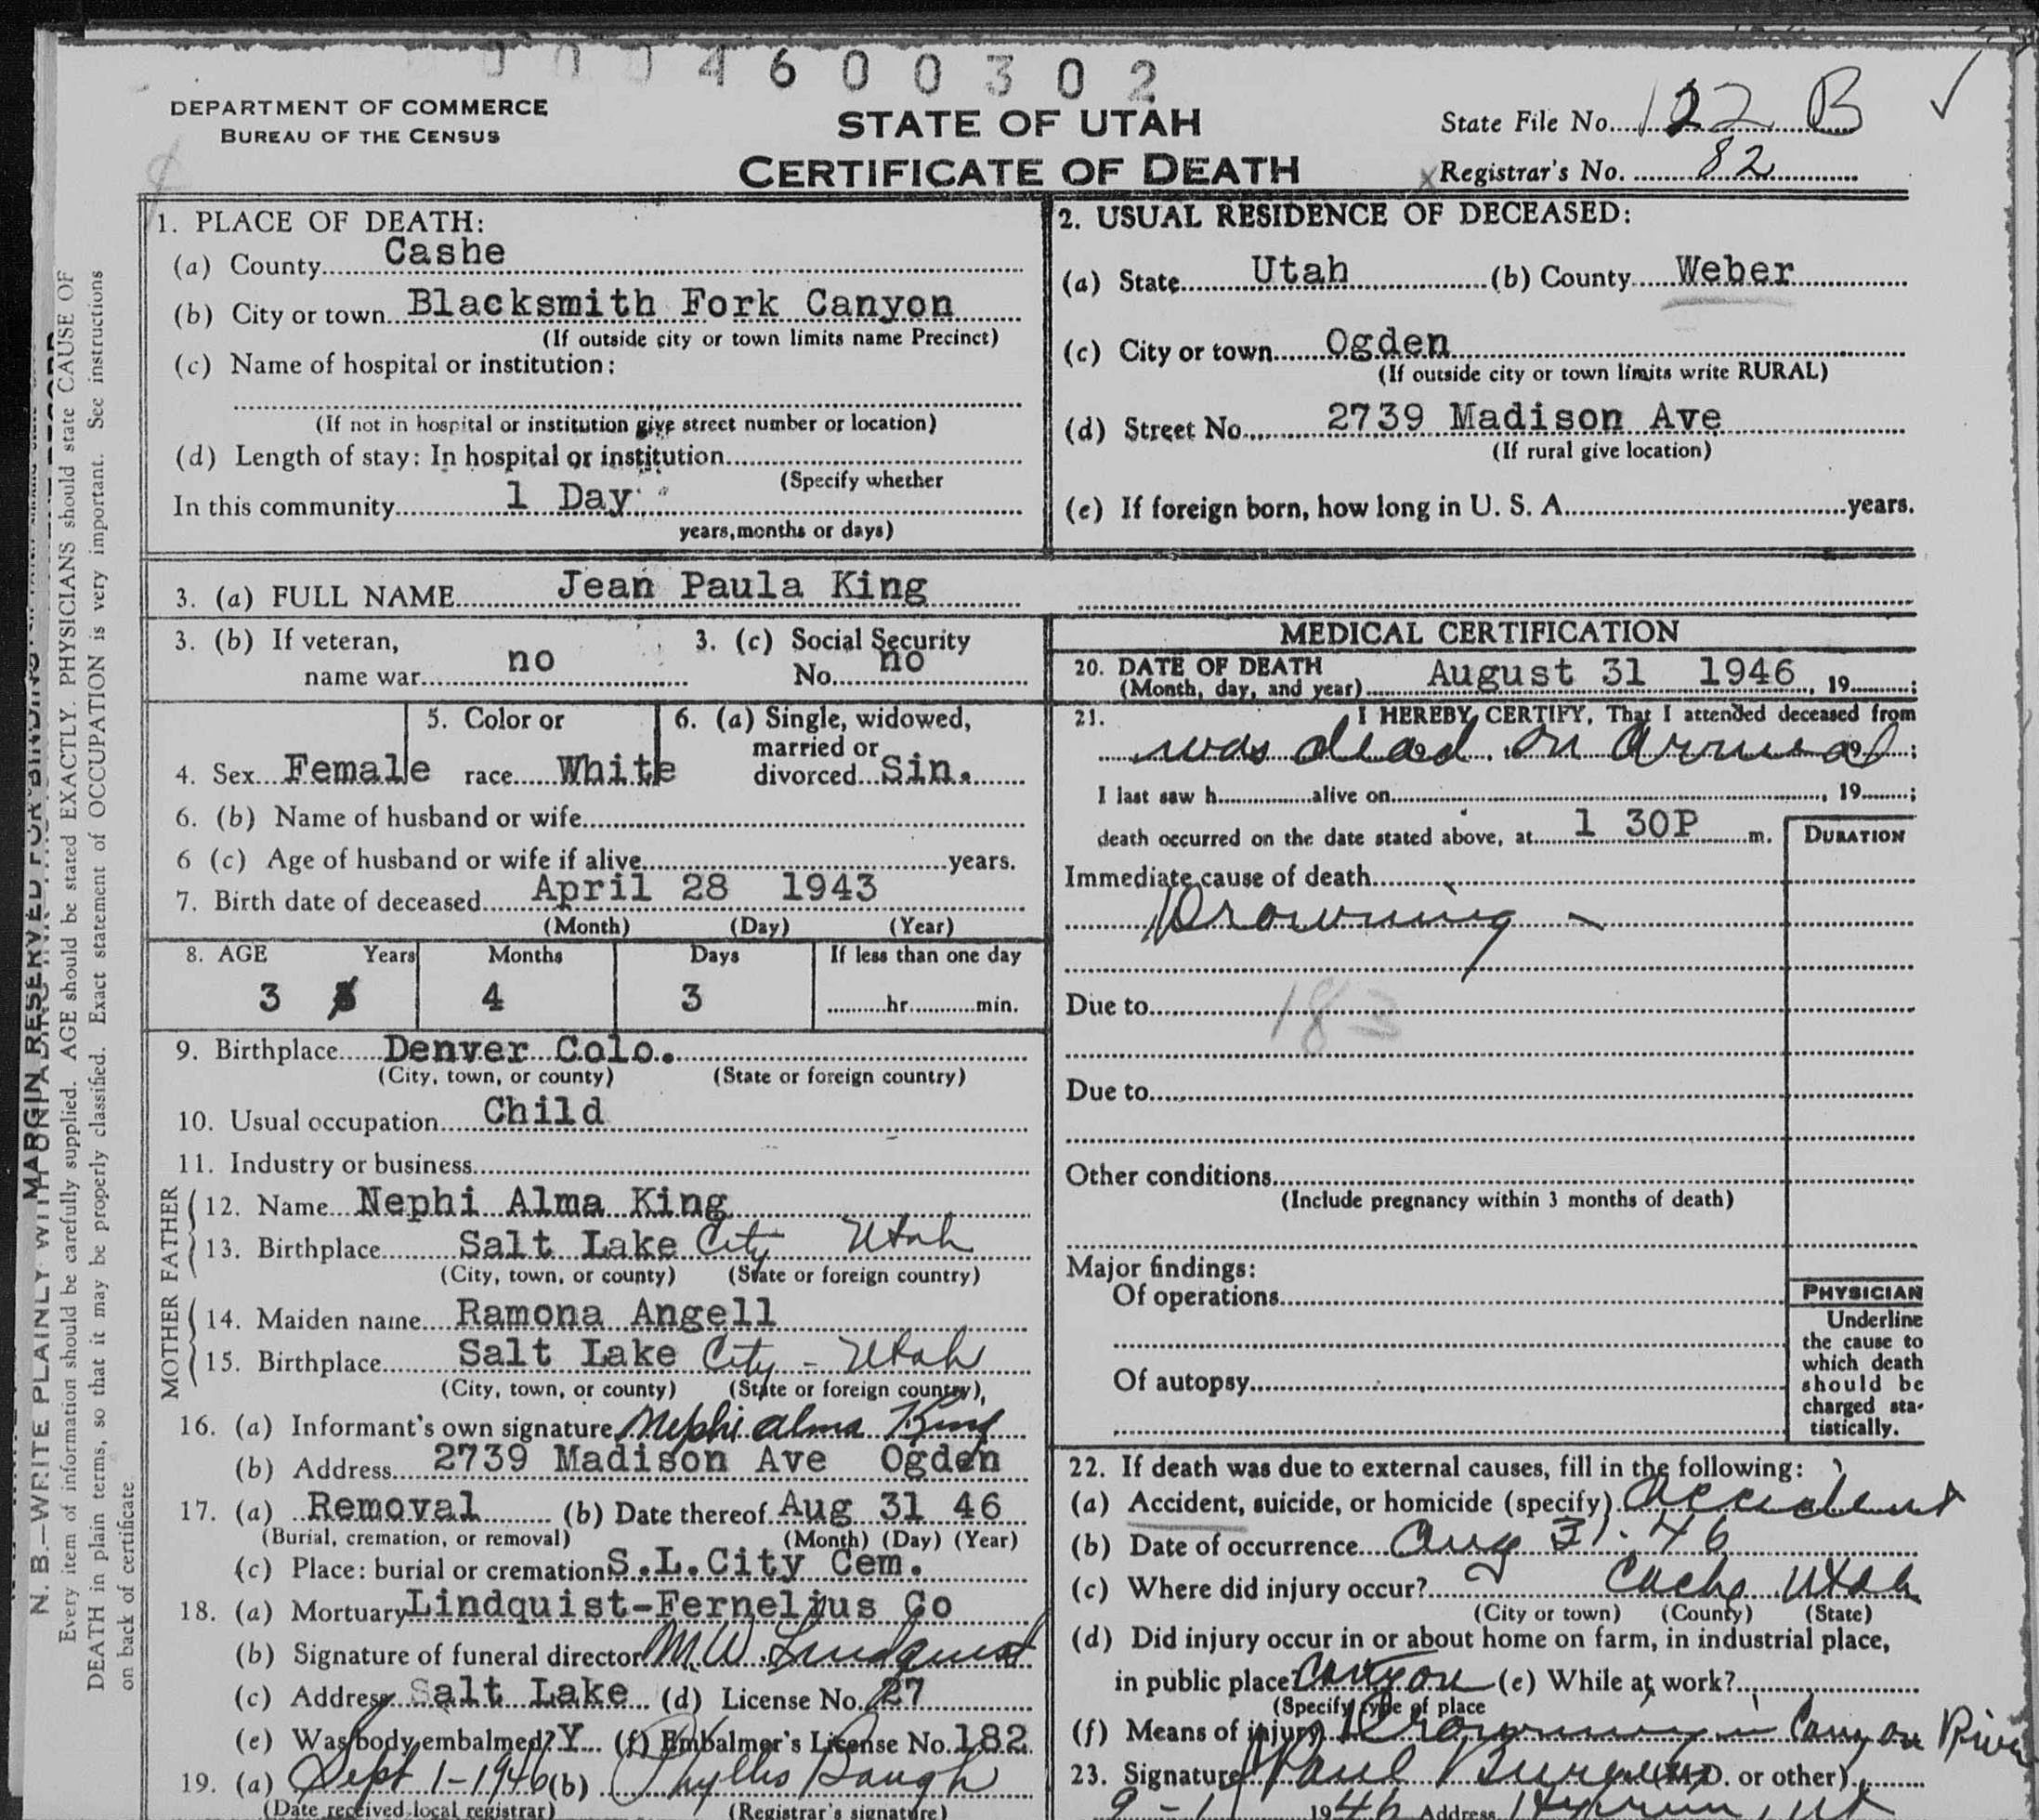 4600302
DEPARTMENT OF COMMERCE
BUREAU OF THE CENSUS
STATE OF UTAH
CERTIFICATE OF DEATH
State File No. 122 B
Registrar's No. 82
1. PLACE OF DEATH:
(a) County Cashe
(b) City or town Blacksmith Fork Canyon
(If outside city or town limits name Precinct)
(c) Name of hospital or institution:
(If not in hospital or institution give street number or location)
(d) Length of stay: In hospital or institution
(Specify whether
In this community 1 Day
years, months or days)
2. USUAL RESIDENCE OF DECEASED:
(a) State Utah (b) County Weber
(c) City or town Ogden
(If outside city or town limits write RURAL)
(d) Street No. 2739 Madison Ave
(If rural give location)
(e) If foreign born, how long in U. S. A. years.
3. (a) FULL NAME Jean Paula King
3. (b) If veteran,
name war no
3. (c) Social Security
No. no
4. Sex Female
5. Color or
race White
6. (a) Single, widowed,
married or
divorced Sin.
6. (b) Name of husband or wife
6 (c) Age of husband or wife if alive years.
7. Birth date of deceased April 28 1943
(Month) (Day) (Year)
8. AGE Years Months Days If less than one day
3 4 3 hr. min.
9. Birthplace Denver Colo.
(City, town, or county) (State or foreign country)
10. Usual occupation Child
11. Industry or business
FATHER
12. Name Nephi Alma King
13. Birthplace Salt Lake City Utah
(City, town, or county) (State or foreign country)
MOTHER
14. Maiden name Ramona Angell
15. Birthplace Salt Lake City - Utah
(City, town, or county) (State or foreign country)
16. (a) Informant's own signature Nephi Alma King
(b) Address 2739 Madison Ave Ogden
17. (a) Removal (b) Date thereof Aug 31 46
(Burial, cremation, or removal) (Month) (Day) (Year)
(c) Place: burial or cremation S.L.City Cem.
18. (a) Mortuary Lindquist-Fernelius Co
(b) Signature of funeral director M.W. Lindquist
(c) Address Salt Lake (d) License No. 27
(e) Was body embalmed? Y (f) Embalmer's License No. 182
19. (a) Sept 1-1946 (b) Phyllis Baugh
(Date received local registrar) (Registrar's signature)
MEDICAL CERTIFICATION
20. DATE OF DEATH
(Month, day, and year) August 31 1946, 19 ;
21. I HEREBY CERTIFY, That I attended deceased from
was dead on arrival 19 ;
I last saw h alive on , 19 ;
death occurred on the date stated above, at 1 30P m.
DURATION
Immediate cause of death
Drowning -
Due to 183
Due to
Other conditions
(Include pregnancy within 3 months of death)
Major findings:
Of operations
Of autopsy
PHYSICIAN
Underline
the cause to
which death
should be
charged sta-
tistically.
22. If death was due to external causes, fill in the following:
(a) Accident, suicide, or homicide (specify) accident
(b) Date of occurrence Aug 31. 46
(c) Where did injury occur? Cache Utah
(City or town) (County) (State)
(d) Did injury occur in or about home on farm, in industrial place,
in public place? Canyon (e) While at work?
(Specify type of place
(f) Means of injury Drowning in Canyon River
23. Signature Paul (M.D. or other)
9-1 1946 Address Hyrum, Ut
MARGIN RESERVED FOR BINDING
N. B.—WRITE PLAINLY WITH
Every item of information should be carefully supplied. AGE should be stated EXACTLY. PHYSICIANS should state CAUSE OF
DEATH in plain terms, so that it may be properly classified. Exact statement of OCCUPATION is very important. See instructions
on back of certificate.